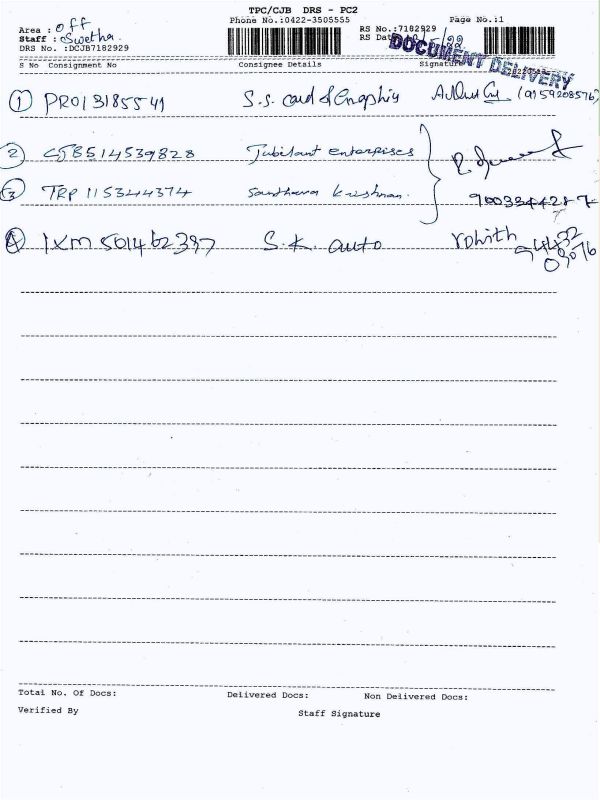 TPC/CJB DRS - PC2
Phone No.:0422-3505555
Page No.:1
Area : off
Staff : Swetha.
DRS No. :DCJB7182929
RS No.:7182929
RS Dat
DOCUMENT DELIVERY
S No Consignment No Consignee Details Signature
1 PRO13185541 S.S. (9159208576)
2 CJB514539828 Jubilant enterprises
3 TRP 115344374 Santhana Krishnan.
4 IXM 501462397 S.K. auto rohith 94432 03076
Total No. Of Docs: Delivered Docs: Non Delivered Docs:
Verified By Staff Signature